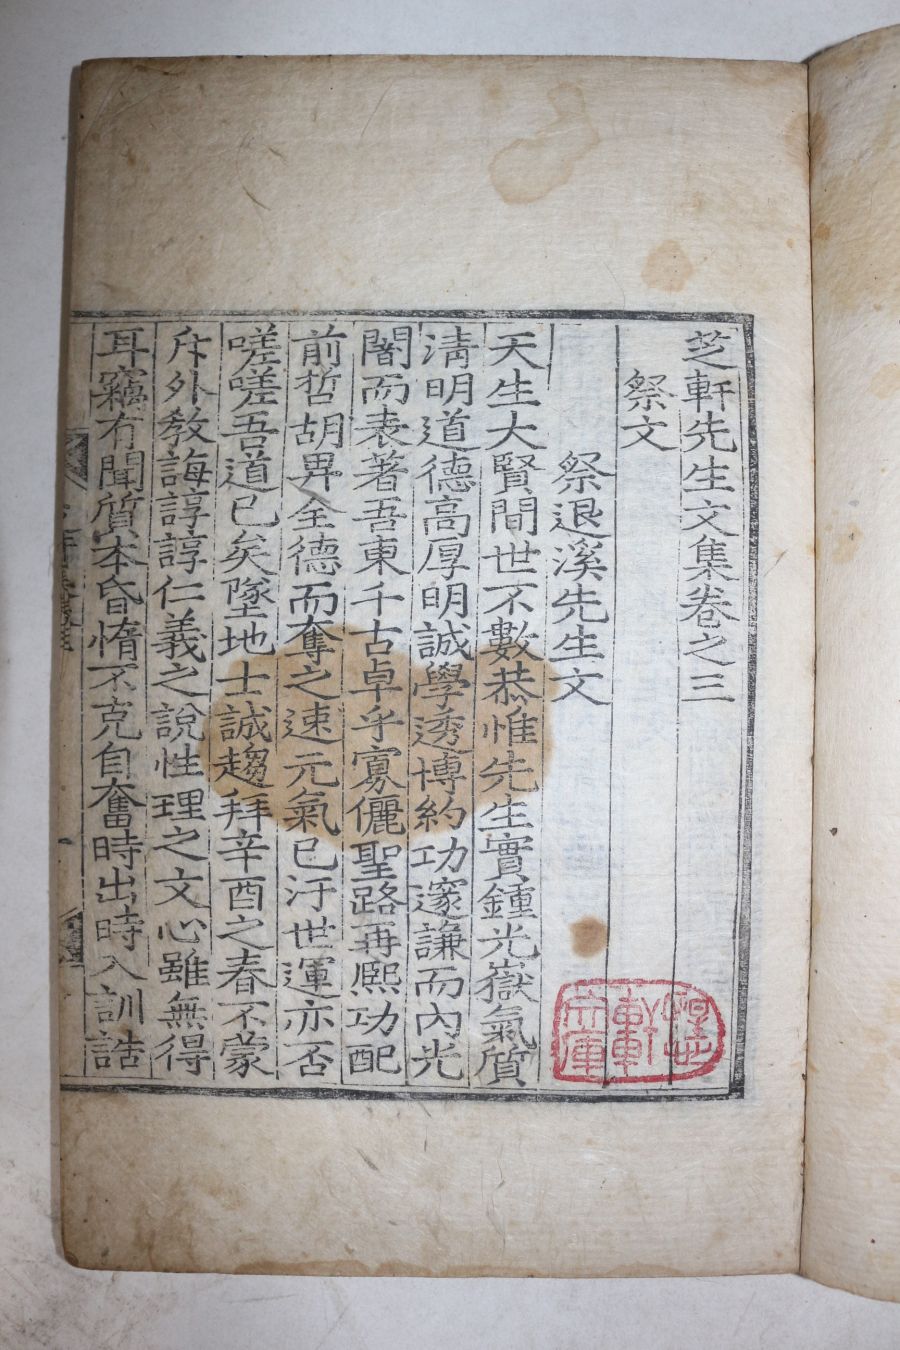 芝軒先生文集卷之三
祭文
祭退溪先生文
天生大賢間世不數恭惟先生實鍾光嶽氣質
淸明道德高厚明誠學透博約功邃謙而內光
闇而表著吾東千古卓乎寡儷聖路再熈功配
前哲胡畀全德而奪之速元氣已汙世運亦否
嗟嗟吾道已矣墜地士誠趨拜辛酉之春不蒙
斥外敎誨諄諄仁義之說性理之文心雖無得
耳竊有聞質本昏惰不克自奮時出時入訓誥
軒
宗庫